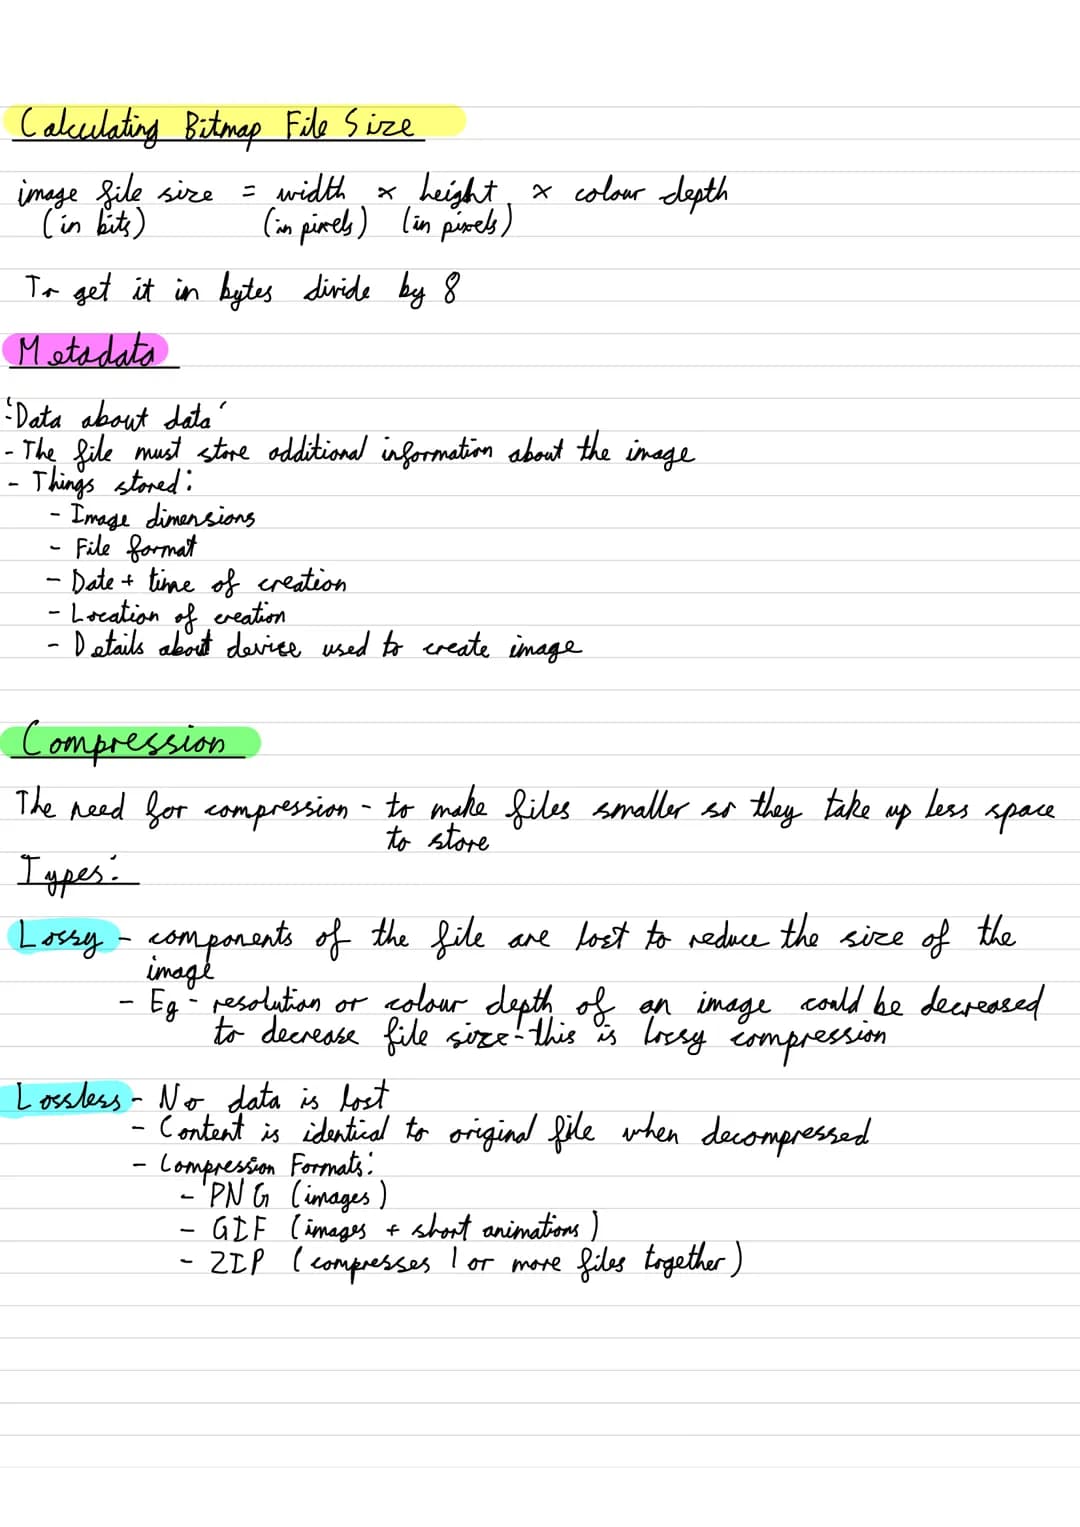 Calculating Bitmap File Size
image file size = width x height x colour depth
(in bits) (in pixels) (in pixels)
To get it in bytes divide by 8
Metadata
- 'Data about data'
- The file must store additional information about the image
- Things stored:
- Image dimensions
- File format
- Date + time of creation
- Location of creation
- Details about device used to create image
Compression
The need for compression - to make files smaller so they take up less space
to store
Types:
Lossy - components of the file are lost to reduce the size of the
image
- Eg - resolution or colour depth of an image could be decreased
to decrease file size - this is lossy compression
Lossless - No data is lost
- Content is identical to original file when decompressed
- Compression Formats:
- PNG (images)
- GIF (images + short animations)
- ZIP (compresses 1 or more files together)